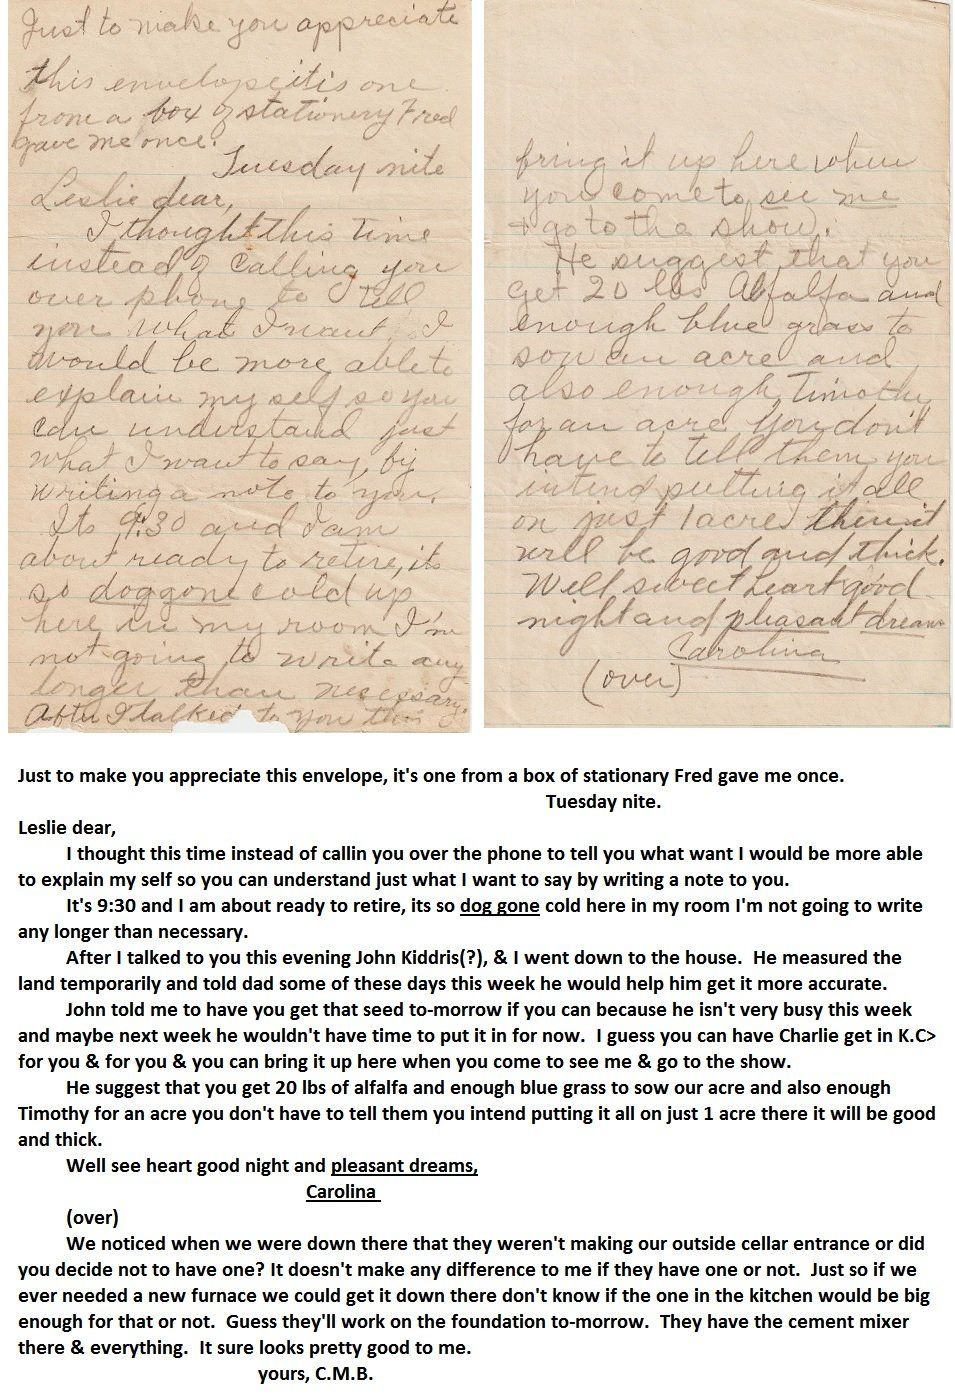 Just to make you appreciate
this envelope it is one
from a box of stationery Fred
gave me once.
Tuesday nite
Leslie dear,
I thought this time
instead of calling you
over phone to tell
you what I want I
would be more able to
explain my self so you
can understand just
what I want to say, by
writing a note to you.
Its 9:30 and I am
about ready to retire, its
so doggone cold up
here in my room I'm
not going to write any
longer than necessary.
After I talked to you this
bring it up here when
you come to see me
+ go to the show.
He suggest that you
get 20 lbs Alfalfa and
enough blue grass to
sow an acre and
also enough Timothy
for an acre you don't
have to tell them you
intend putting it all
on just 1 acre then it
will be good and thick.
Well sweet heart good
night and pleasant dreams
Carolina
(over)
Just to make you appreciate this envelope, it's one from a box of stationary Fred gave me once.
Tuesday nite.
Leslie dear,
I thought this time instead of callin you over the phone to tell you what want I would be more able
to explain my self so you can understand just what I want to say by writing a note to you.
It's 9:30 and I am about ready to retire, its so dog gone cold here in my room I'm not going to write
any longer than necessary.
After I talked to you this evening John Kiddris(?), & I went down to the house.  He measured the
land temporarily and told dad some of these days this week he would help him get it more accurate.
John told me to have you get that seed to-morrow if you can because he isn't very busy this week
and maybe next week he wouldn't have time to put it in for now.  I guess you can have Charlie get in K.C>
for you & for you & you can bring it up here when you come to see me & go to the show.
He suggest that you get 20 lbs of alfalfa and enough blue grass to sow our acre and also enough
Timothy for an acre you don't have to tell them you intend putting it all on just 1 acre there it will be good
and thick.
Well see heart good night and pleasant dreams,
Carolina
(over)
We noticed when we were down there that they weren't making our outside cellar entrance or did
you decide not to have one? It doesn't make any difference to me if they have one or not.  Just so if we
ever needed a new furnace we could get it down there don't know if the one in the kitchen would be big
enough for that or not.  Guess they'll work on the foundation to-morrow.  They have the cement mixer
there & everything.  It sure looks pretty good to me.
yours, C.M.B.